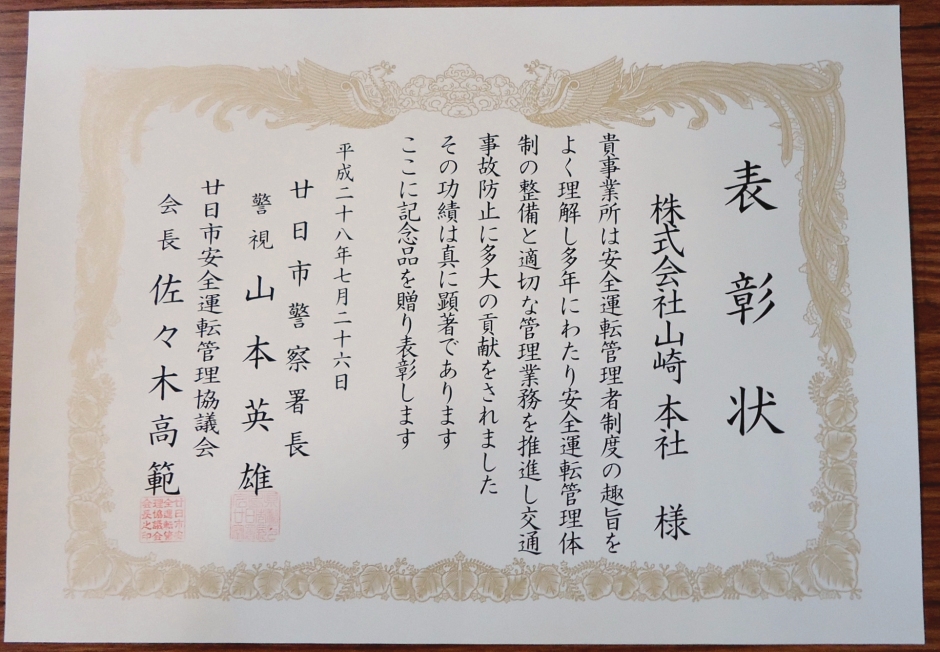 表彰状
株式会社山崎本社 様
貴事業所は安全運転管理者制度の趣旨を
よく理解し多年にわたり安全運転管理体
制の整備と適切な管理業務を推進し交通
事故防止に多大の貢献をされました
その功績は真に顕著であります
ここに記念品を贈り表彰します
平成二十八年七月二十六日
廿日市警察署長
警視 山本英雄
廿日市安全運転管理協議会
会長 佐々木高範